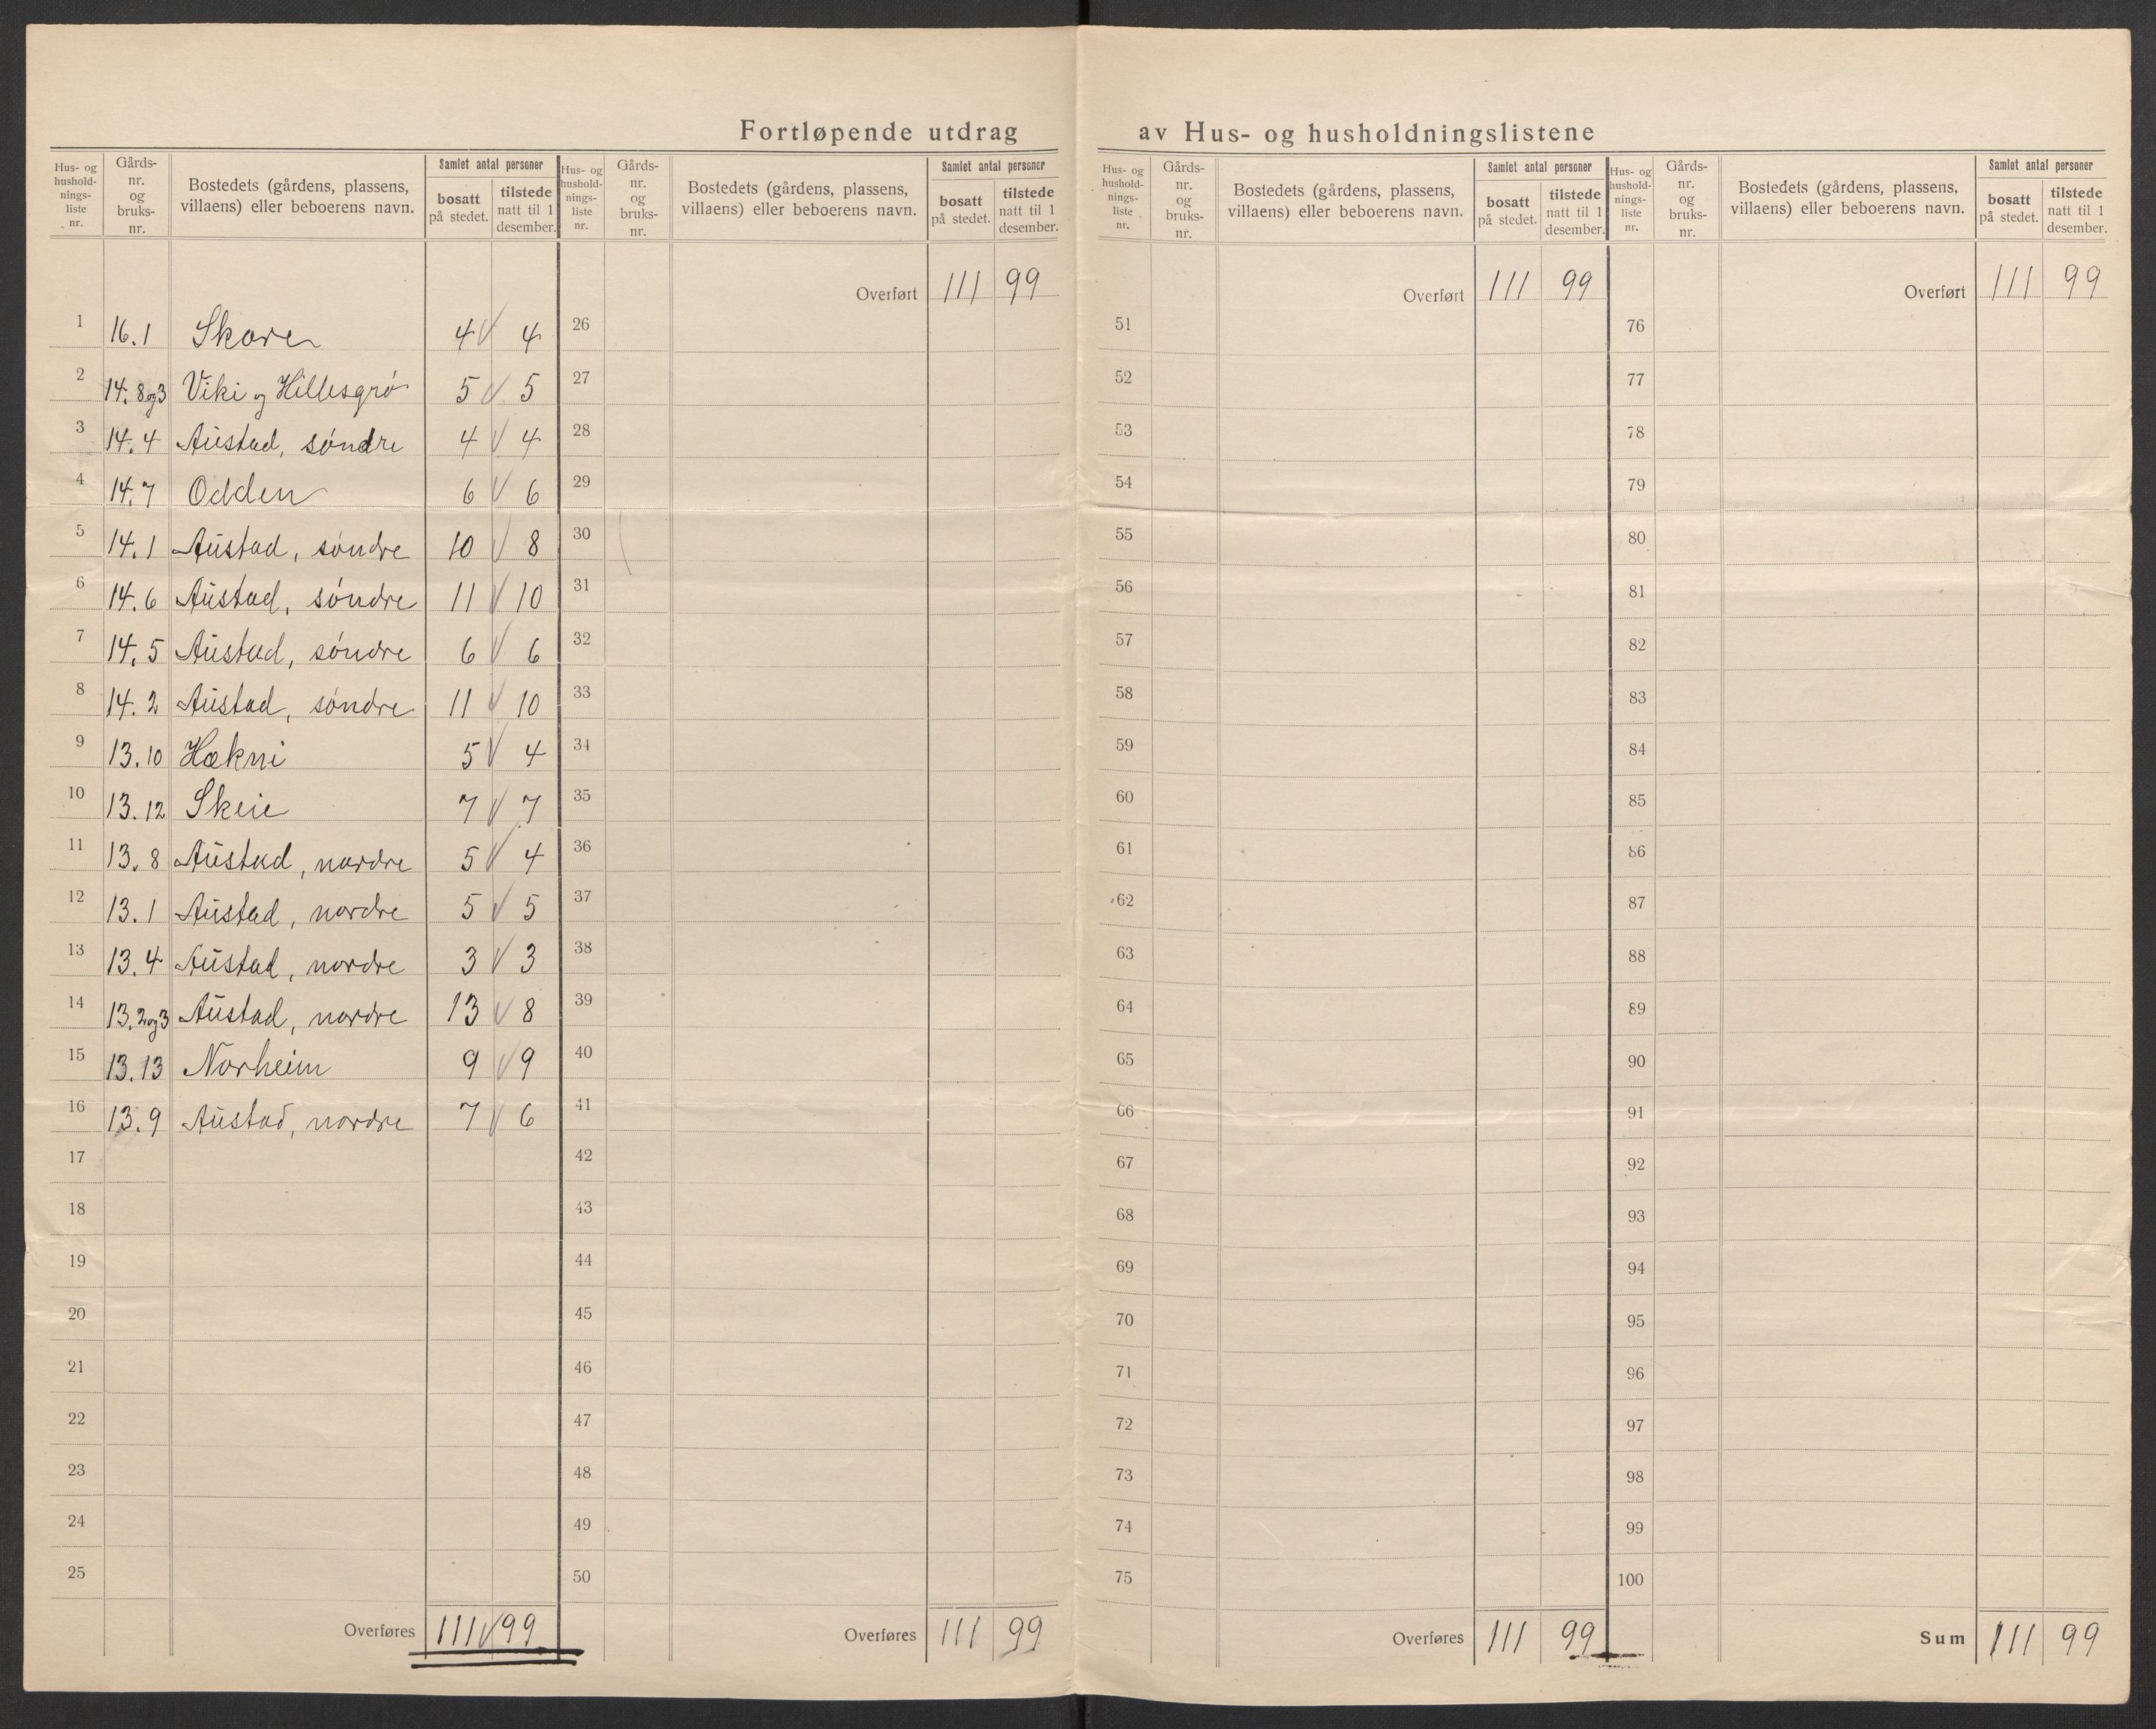 Fortløpende utdrag av Hus- og husholdningslistene
Hus- og husholdnings-liste nr. Gårds-nr. og bruks-nr. Bostedets (gårdens, plassens, villaens) eller beboerens navn. Samlet antal personer bosatt på stedet. tilstede natt til 1 desember.
1 16.1 Skore 4 4
2 14.8 og 3 Viki og Hillesgrø 5 5
3 14.4 Austad, søndre 4 4
4 14.7 Odden 6 6
5 14.1 Austad, søndre 10 8
6 14.6 Austad, søndre 11 10
7 14.5 Austad, søndre 6 6
8 14.2 Austad, søndre 11 10
9 13.10 Hækni 5 4
10 13.12 Skeie 7 7
11 13.8 Austad, nordre 5 4
12 13.1 Austad, nordre 5 5
13 13.4 Austad, nordre 3 3
14 13.2 og 3 Austad, nordre 13 8
15 13.13 Norheim 9 9
16 13.9 Austad, nordre 7 6
17
18
19
20
21
22
23
24
25
Overføres 111 99
Hus- og husholdnings-liste nr. Gårds-nr. og bruks-nr. Bostedets (gårdens, plassens, villaens) eller beboerens navn. Samlet antal personer bosatt på stedet. tilstede natt til 1 desember.
Overført 111 99
26
27
28
29
30
31
32
33
34
35
36
37
38
39
40
41
42
43
44
45
46
47
48
49
50
Overføres 111 99
Hus- og hushold-nings-liste nr. Gårds-nr. og bruks-nr. Bostedets (gårdens, plassens, villaens) eller beboerens navn. Samlet antal personer bosatt på stedet. tilstede natt til 1 desember.
Overført 111 99
51
52
53
54
55
56
57
58
59
60
61
62
63
64
65
66
67
68
69
70
71
72
73
74
75
Overføres 111 99
Hus- og hushold-nings-liste nr. Gårds-nr. og bruks-nr. Bostedets (gårdens, plassens, villaens) eller beboerens navn. Samlet antal personer bosatt på stedet. tilstede natt til 1 desember.
Overført 111 99
76
77
78
79
80
81
82
83
84
85
86
87
88
89
90
91
92
93
94
95
96
97
98
99
100
Sum 111 99